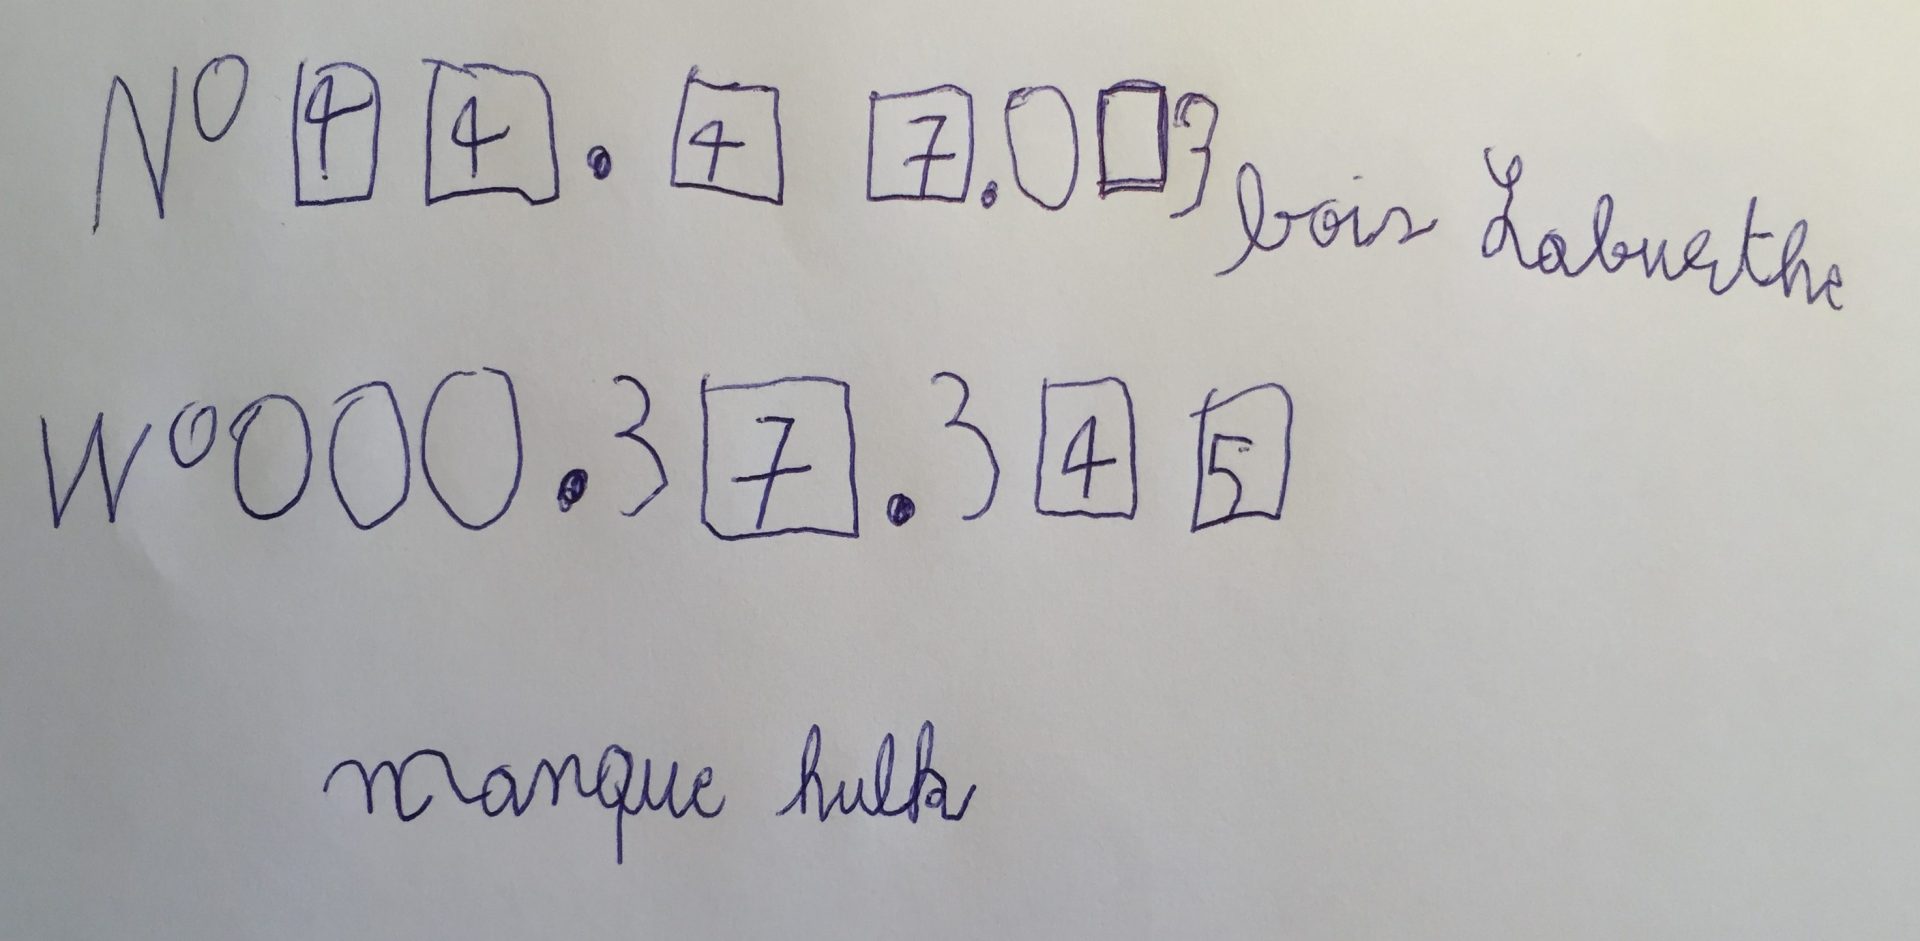 N° 44.47.0□3 bois Laburthe
W°000.37.345
manque hulk